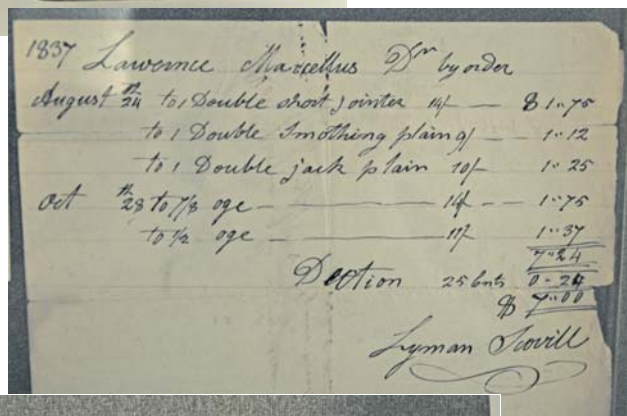 1837 Lawernce Marcellus Dr by order
August 24th to 1 Double Jointer 14/- $ 1"75
to 1 Double Smothing plain 9/- 1"12
to 1 Double jack plain 10/- 1"25
Oct 28th to 7/8 oge 14/- 1"75
to 1/2 oge 11/- 1"37
7"24
Dection 25 cnts 0-24
$ 7"00
Lyman Scovill